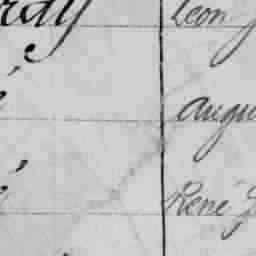 rdy Léon
é Augu
é René